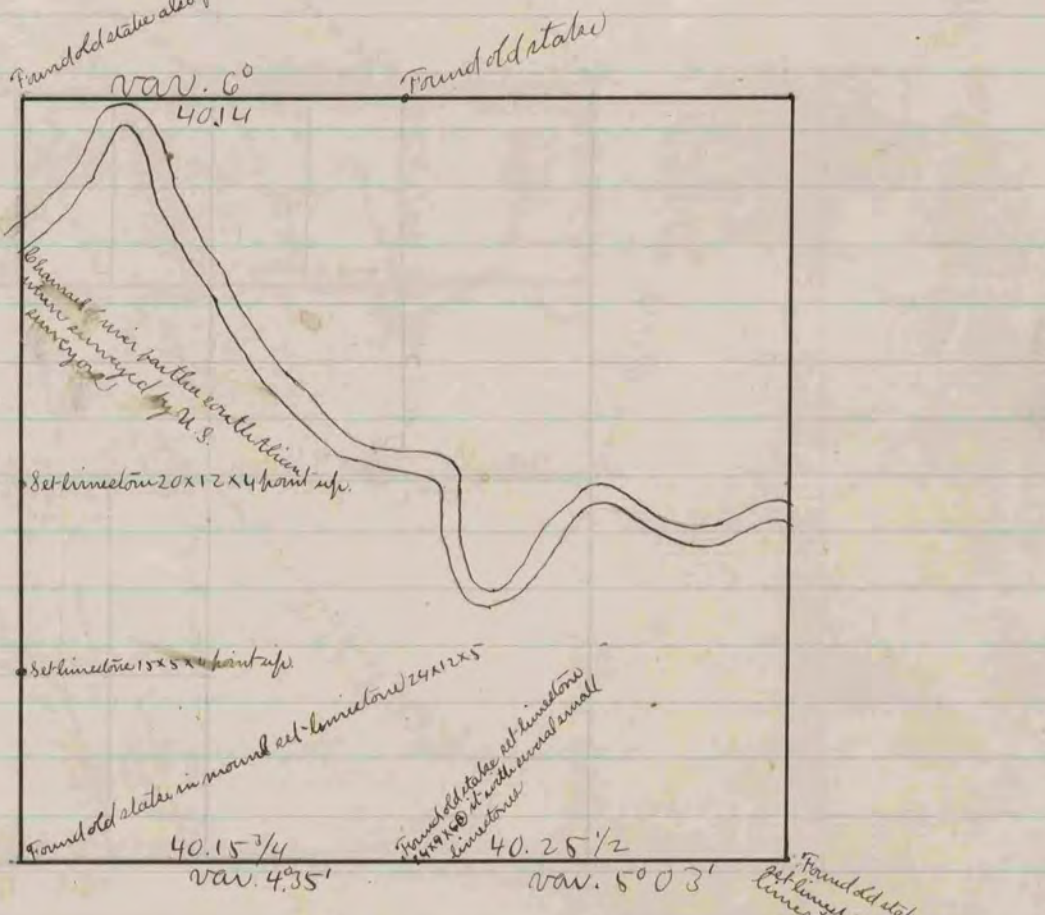 Found old stake also
Found old stake
Var. 6°
40.14
Channel of river farther south than
when surveyed by U.S.
surveyors
Set limestone 20x12x4 point up.
Set limestone 15x5x4 point up.
Found old stake in mound set limestone 24x12x5
Found old stake set limestone
it with several small
limestones
40.15 3/4
40.25 1/2
Var. 4°35'
Var. 5° 03'
Found old
set